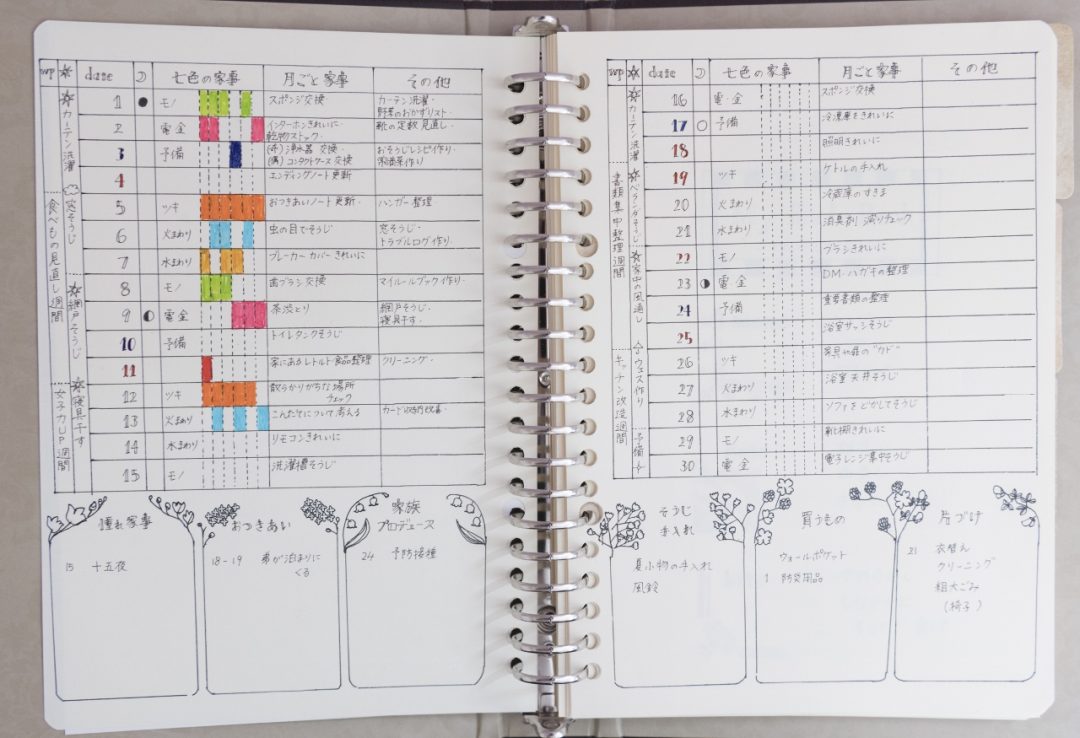 wp date 七色の家事 月ごと家事 その他
1 モノ スポンジ交換 カーテン洗濯・
野菜のおかずリスト・
2 電金 インターホンきれいに・ 靴の定数見直し・
乾物ストック・
3 予備 浄水器 交換・ おそうじレシピ作り・
コンタクトケース交換 常備菜作り
4 エンディングノート更新
5 ツキ おつきあいノート更新・ ハンガー整理・
6 火まわり 虫の目でそうじ 窓そうじ・
トラブルログ作り・
7 水まわり ブレーカーカバーきれいに
8 モノ 歯ブラシ交換 マイルールブック作り・
9 電金 茶渋とり 網戸そうじ・
寝具干す・
10 予備 トイレタンクそうじ
11 家にあるレトルト食品整理 クリーニング・
12 ツキ 散らかりがちな場所
チェック
13 火まわり こんだてについて考える カード収納改善・
14 水まわり リモコンきれいに
15 モノ 洗濯槽そうじ
カーテン洗濯
窓そうじ
網戸そうじ
寝具干す
食べもの見直し週間
女子力UP週間
憧れ家事
15 十五夜
おつきあい
18-19 弟が泊まりに
くる
家族
プロデュース
24 予防接種
wp date 七色の家事 月ごと家事 その他
16 電金 スポンジ交換
17 予備 冷凍庫をきれいに
18 照明きれいに
19 ツキ ケトルの手入れ
20 火まわり 冷蔵庫のすきま
21 水まわり 消臭剤 減りチェック
22 モノ ブラシきれいに
23 電金 DM・ハガキの整理
24 予備 重要書類の整理
25 浴室サッシそうじ
26 ツキ 家具や扉の"カド"
27 火まわり 浴室天井そうじ
28 水まわり ソファをどかしてそうじ
29 モノ 靴棚きれいに
30 電金 電子レンジ集中そうじ
カーテン洗濯
ベランダそうじ
家中の風通し
ウエス作り
書類集中整理週間
キッチン改造週間
予備
そうじ
手入れ
夏小物の手入れ
風鈴
買うもの
ウォールポケット
1 防災用品
片づけ
21 衣替え
クリーニング
粗大ごみ
(椅子)